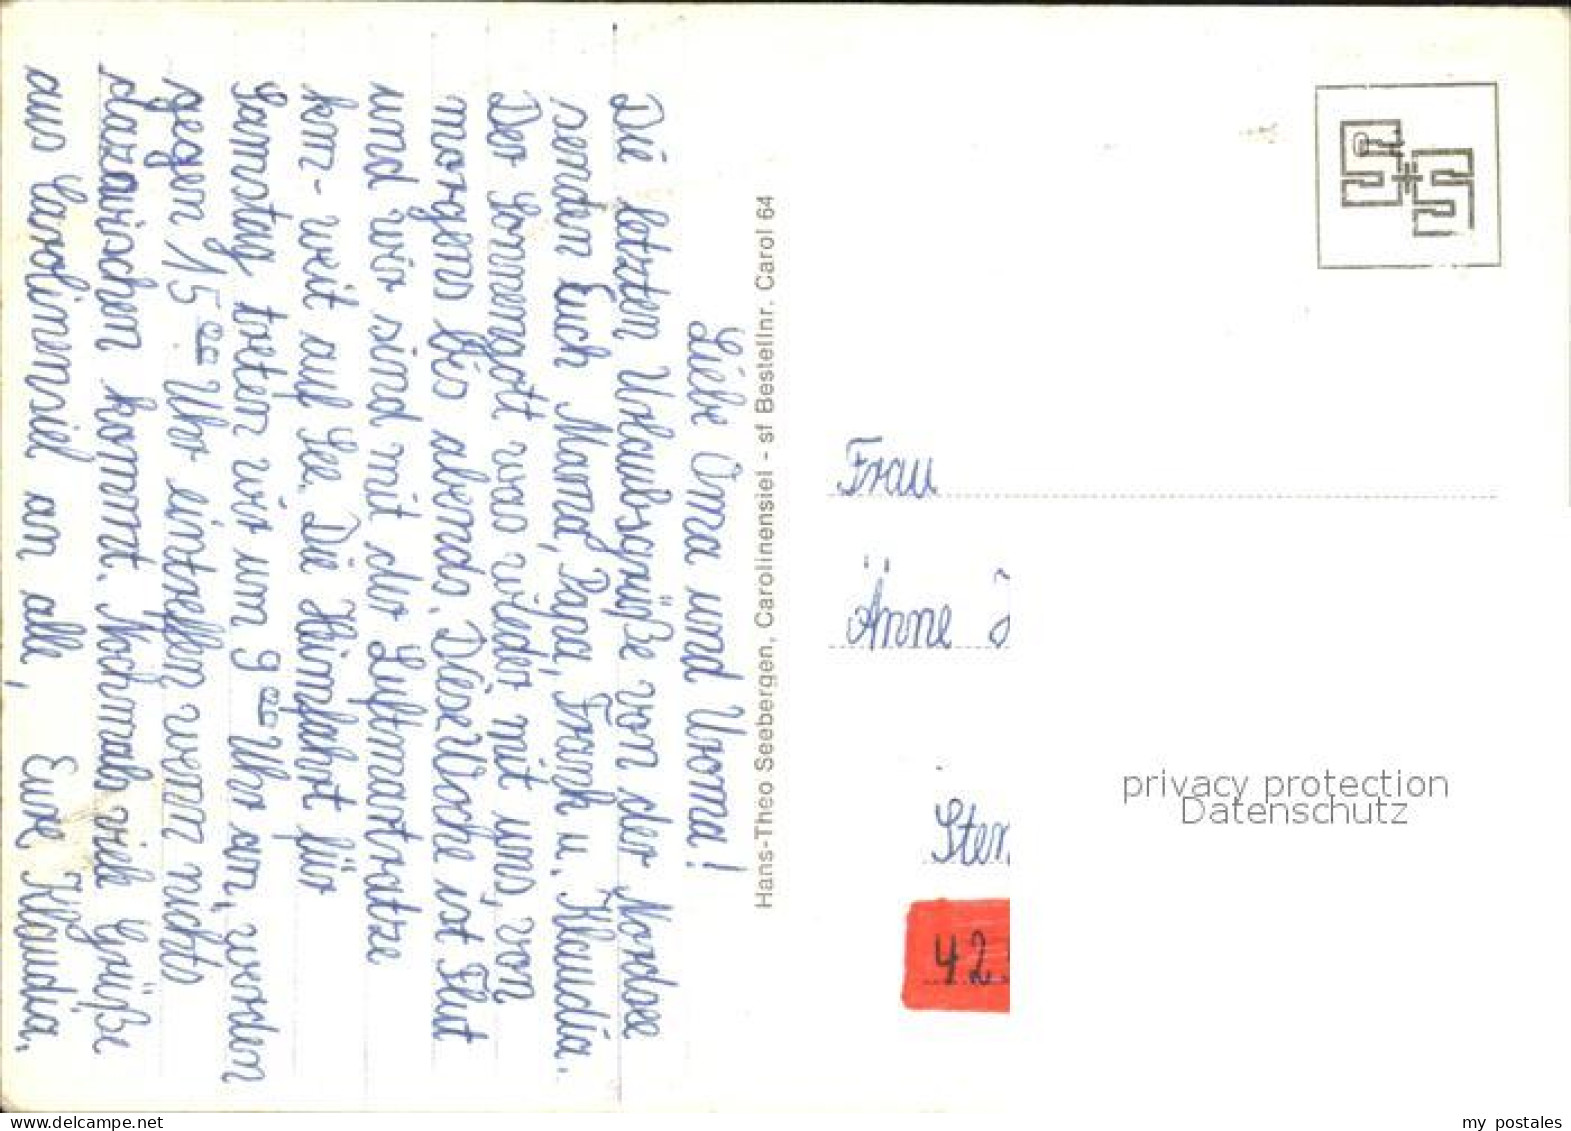 Liebe Oma und Uroma!
Die letzten Urlaubsgrüße von der Nordsee
senden Euch Mama, Papa, Frank u. Klaudia.
Der Sonnengott war wieder mit uns, von
morgens bis abends. Diese Woche ist Flut
und wir sind mit der Luftmatratze
km-weit auf See. Die Heimfahrt für
Samstag treten wir um 9 00 Uhr an, werden
gegen 15 00 Uhr eintreffen wenn nichts
dazwischen kommt. Nochmals viele Grüße
aus Carolinensiel an alle, Eure Klaudia.
Hans-Theo Seebergen, Carolinensiel - sf Bestellnr. Carol 64
Frau
Änne
Sten
42
privacy protection
Datenschutz
my postales